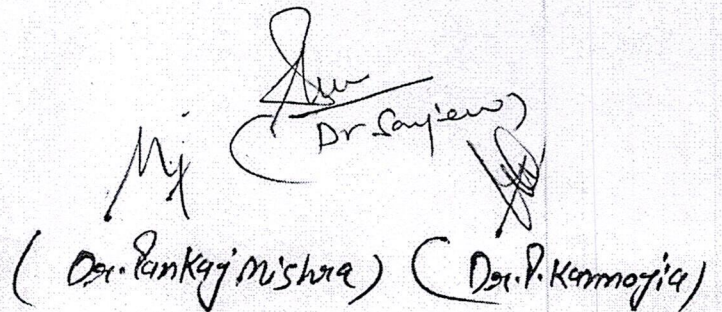 (Dr Sanjeev)
(Dr. Pankaj Mishra) (Dr. P. Kannojia)